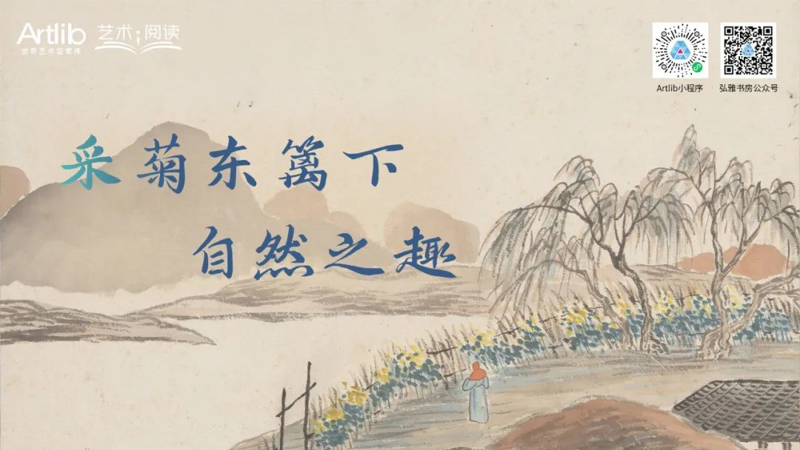 Artlib 艺术;阅读
世界艺术鉴赏库
Artlib小程序 弘雅书房公众号
采菊东篱下
自然之趣